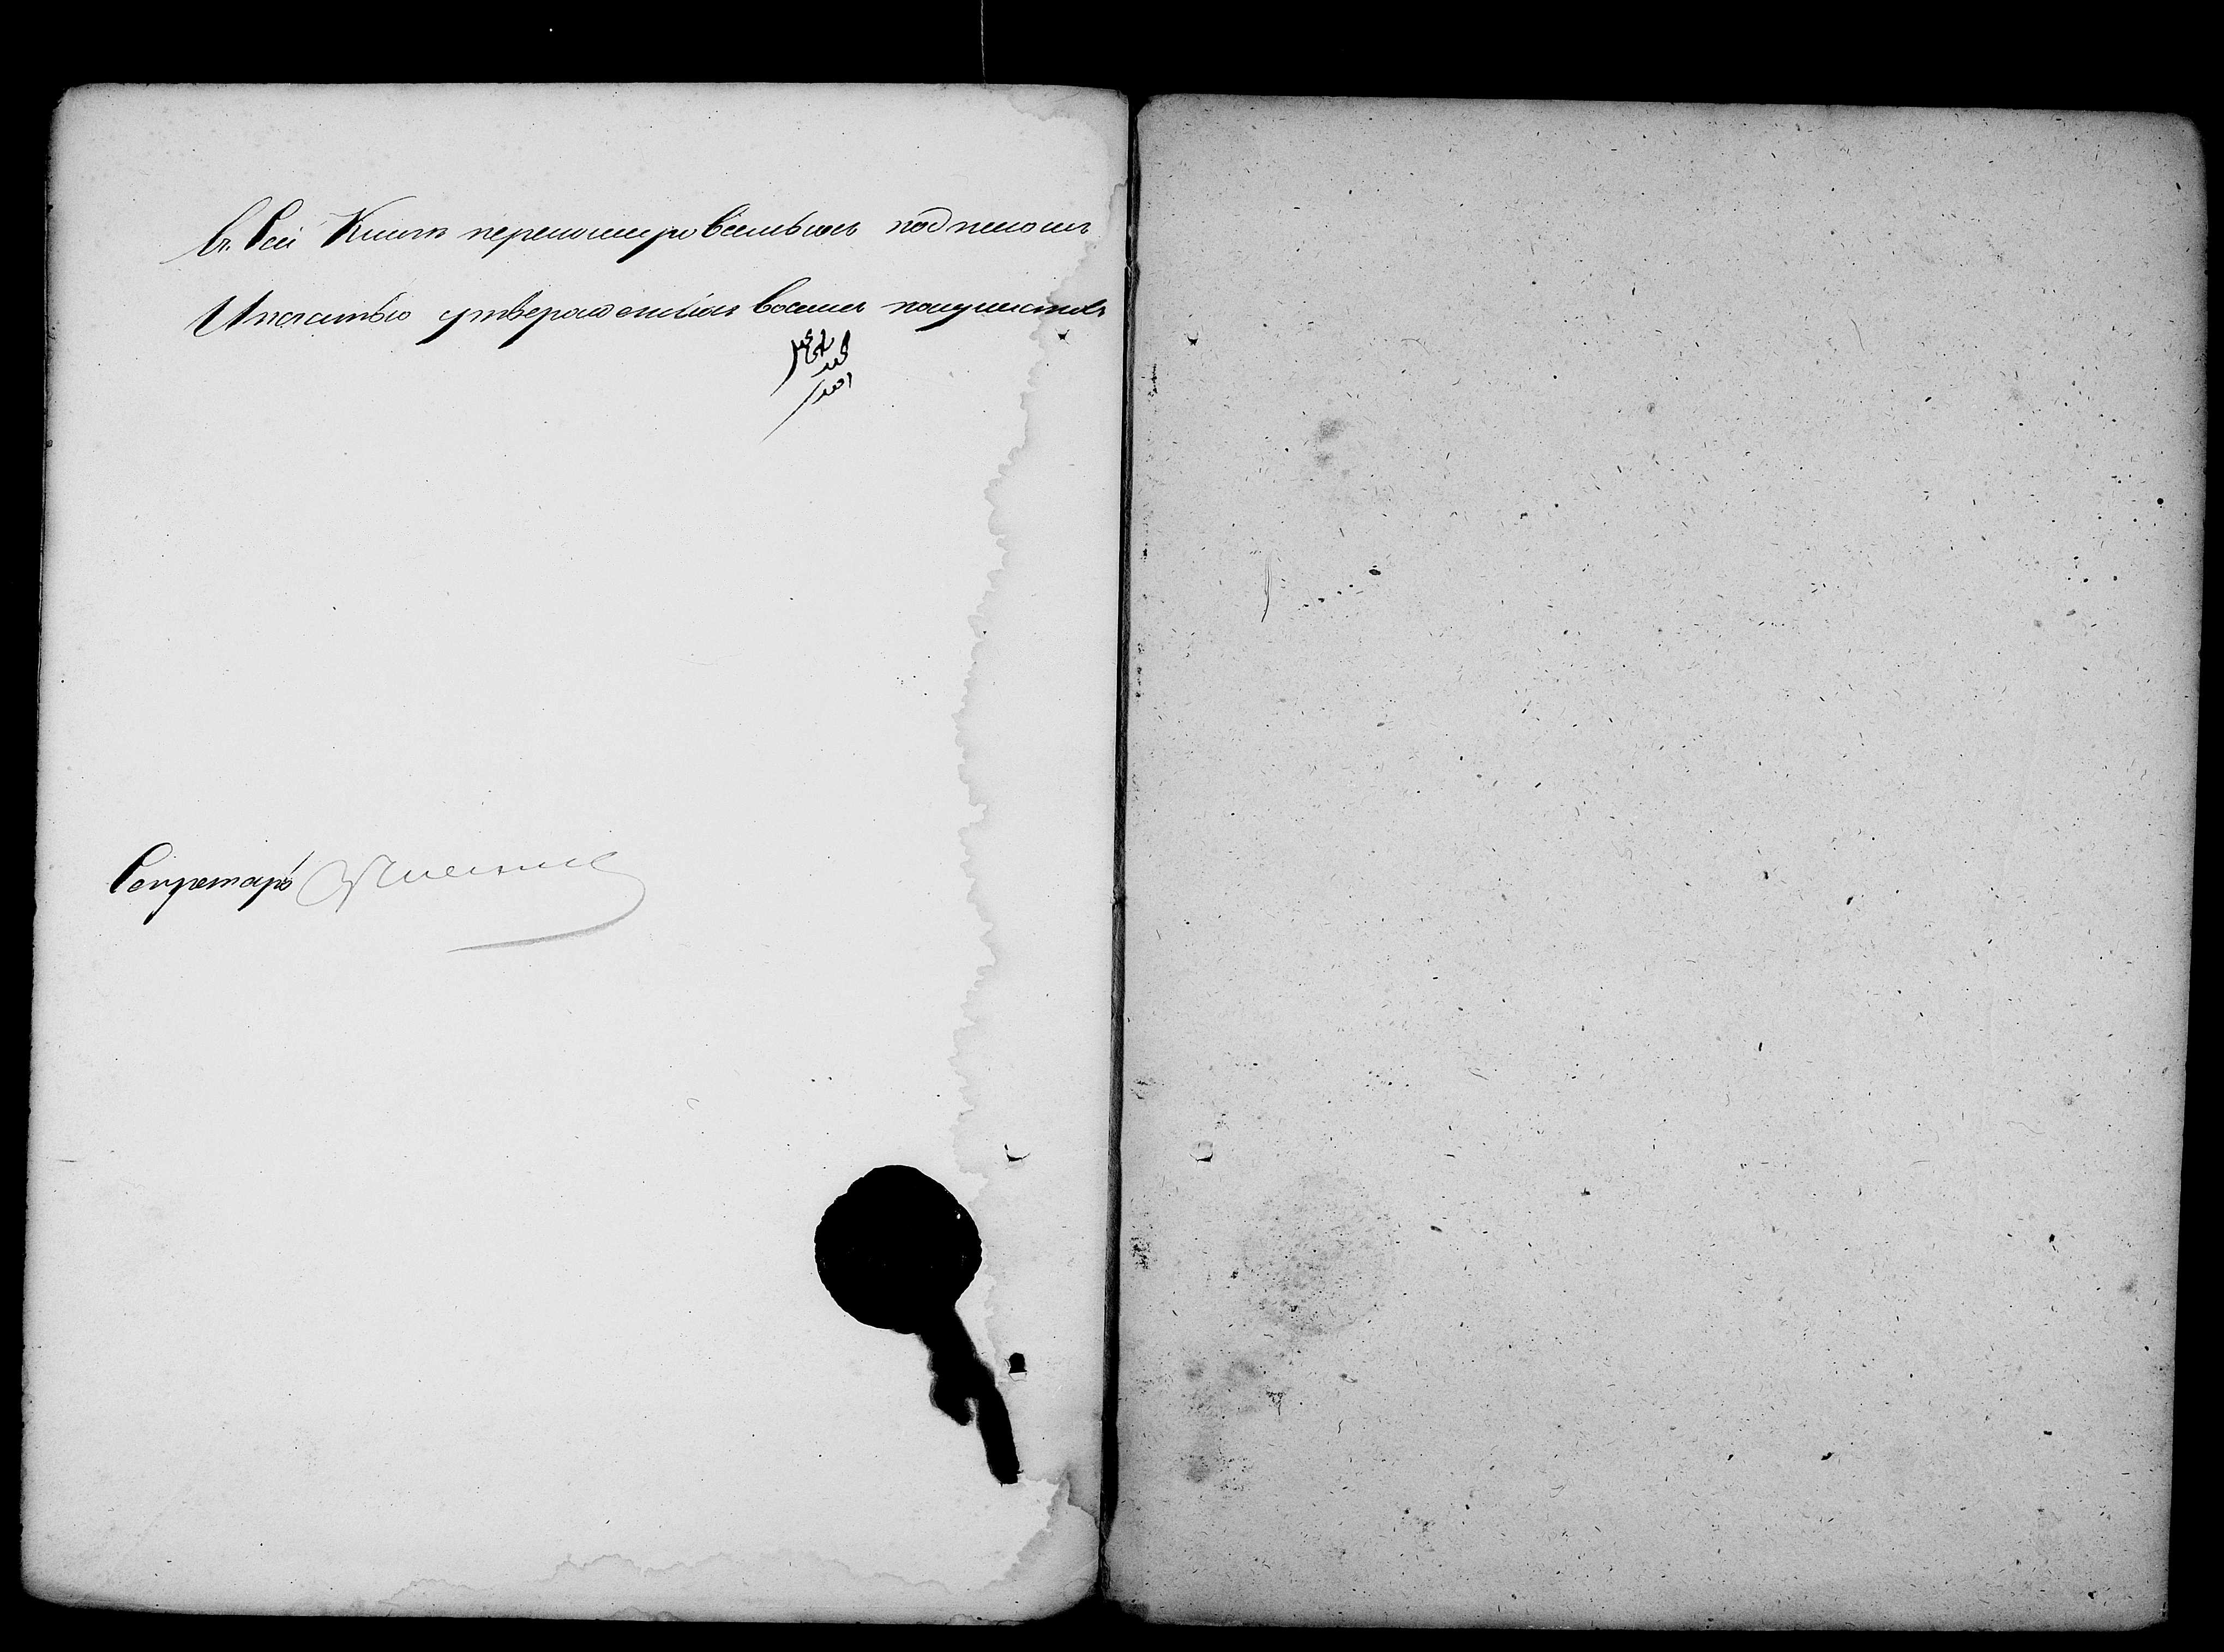 Въ сей Книгѣ перенумерованныхъ подписомъ
И печатью утвержденныхъ восемь полулистовъ
Секретарь